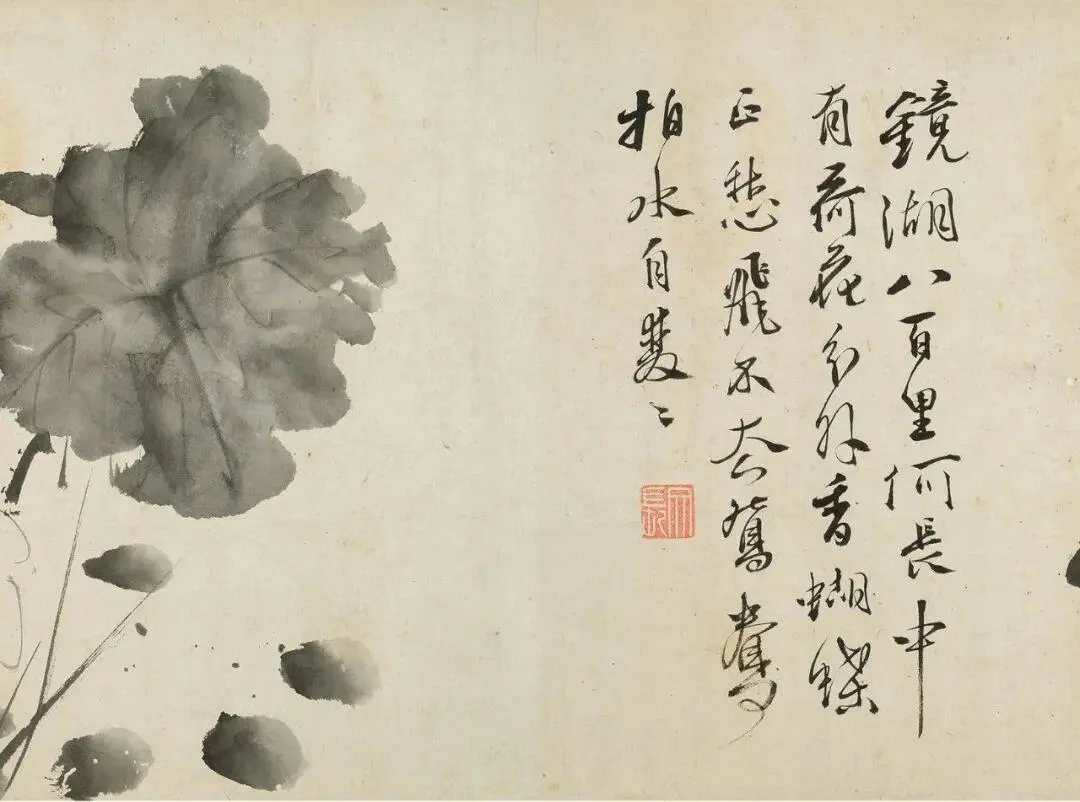 鏡湖八百里何長中
有荷花分外香蝴蝶
正愁飛不鴛鴦
拍水自雙〻